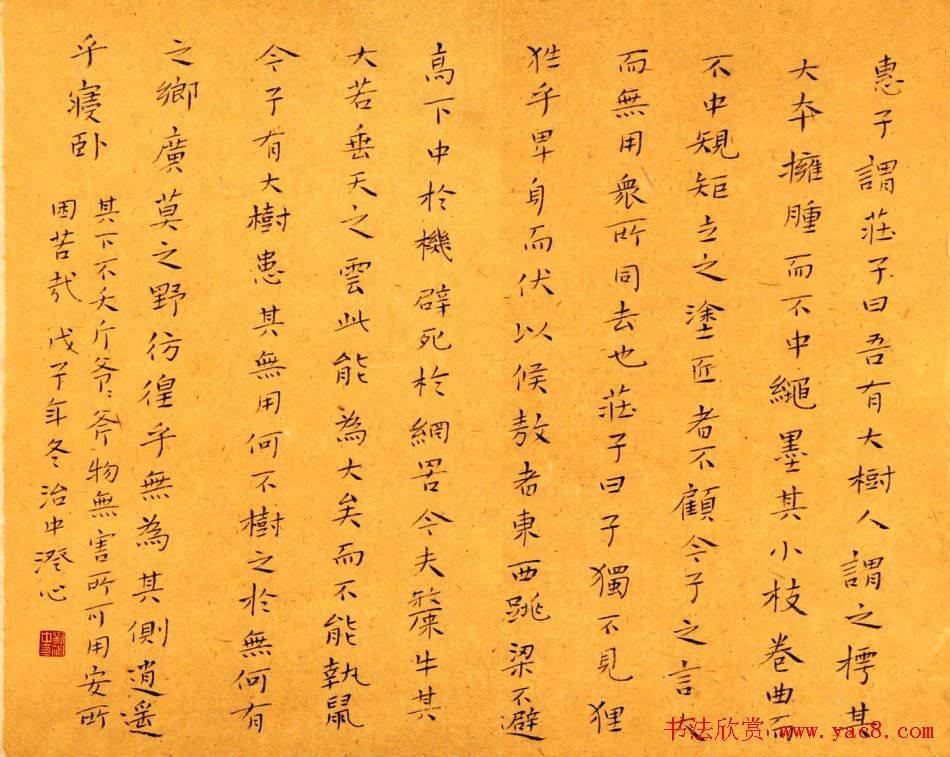 惠子謂莊子曰吾有大樹人謂之樗其
大夲擁腫而不中繩墨其小枝卷曲而
不中規矩立之塗匠者不顧今子之言大
而無用衆所同去也莊子曰子獨不見狸
狌乎卑身而伏以候敖者東西跳梁不避
高下中於機辟死於網罟今夫斄牛其
大若垂天之雲此能為大矣而不能執鼠
今子有大樹患其無用何不樹之於無何有
之鄉廣莫之野彷徨乎無為其側逍遥
乎寢卧
其下不夭斤爷斧物無害所可用安所
困苦哉 戊子年冬治中澄心
书法欣赏 www.yac8.com